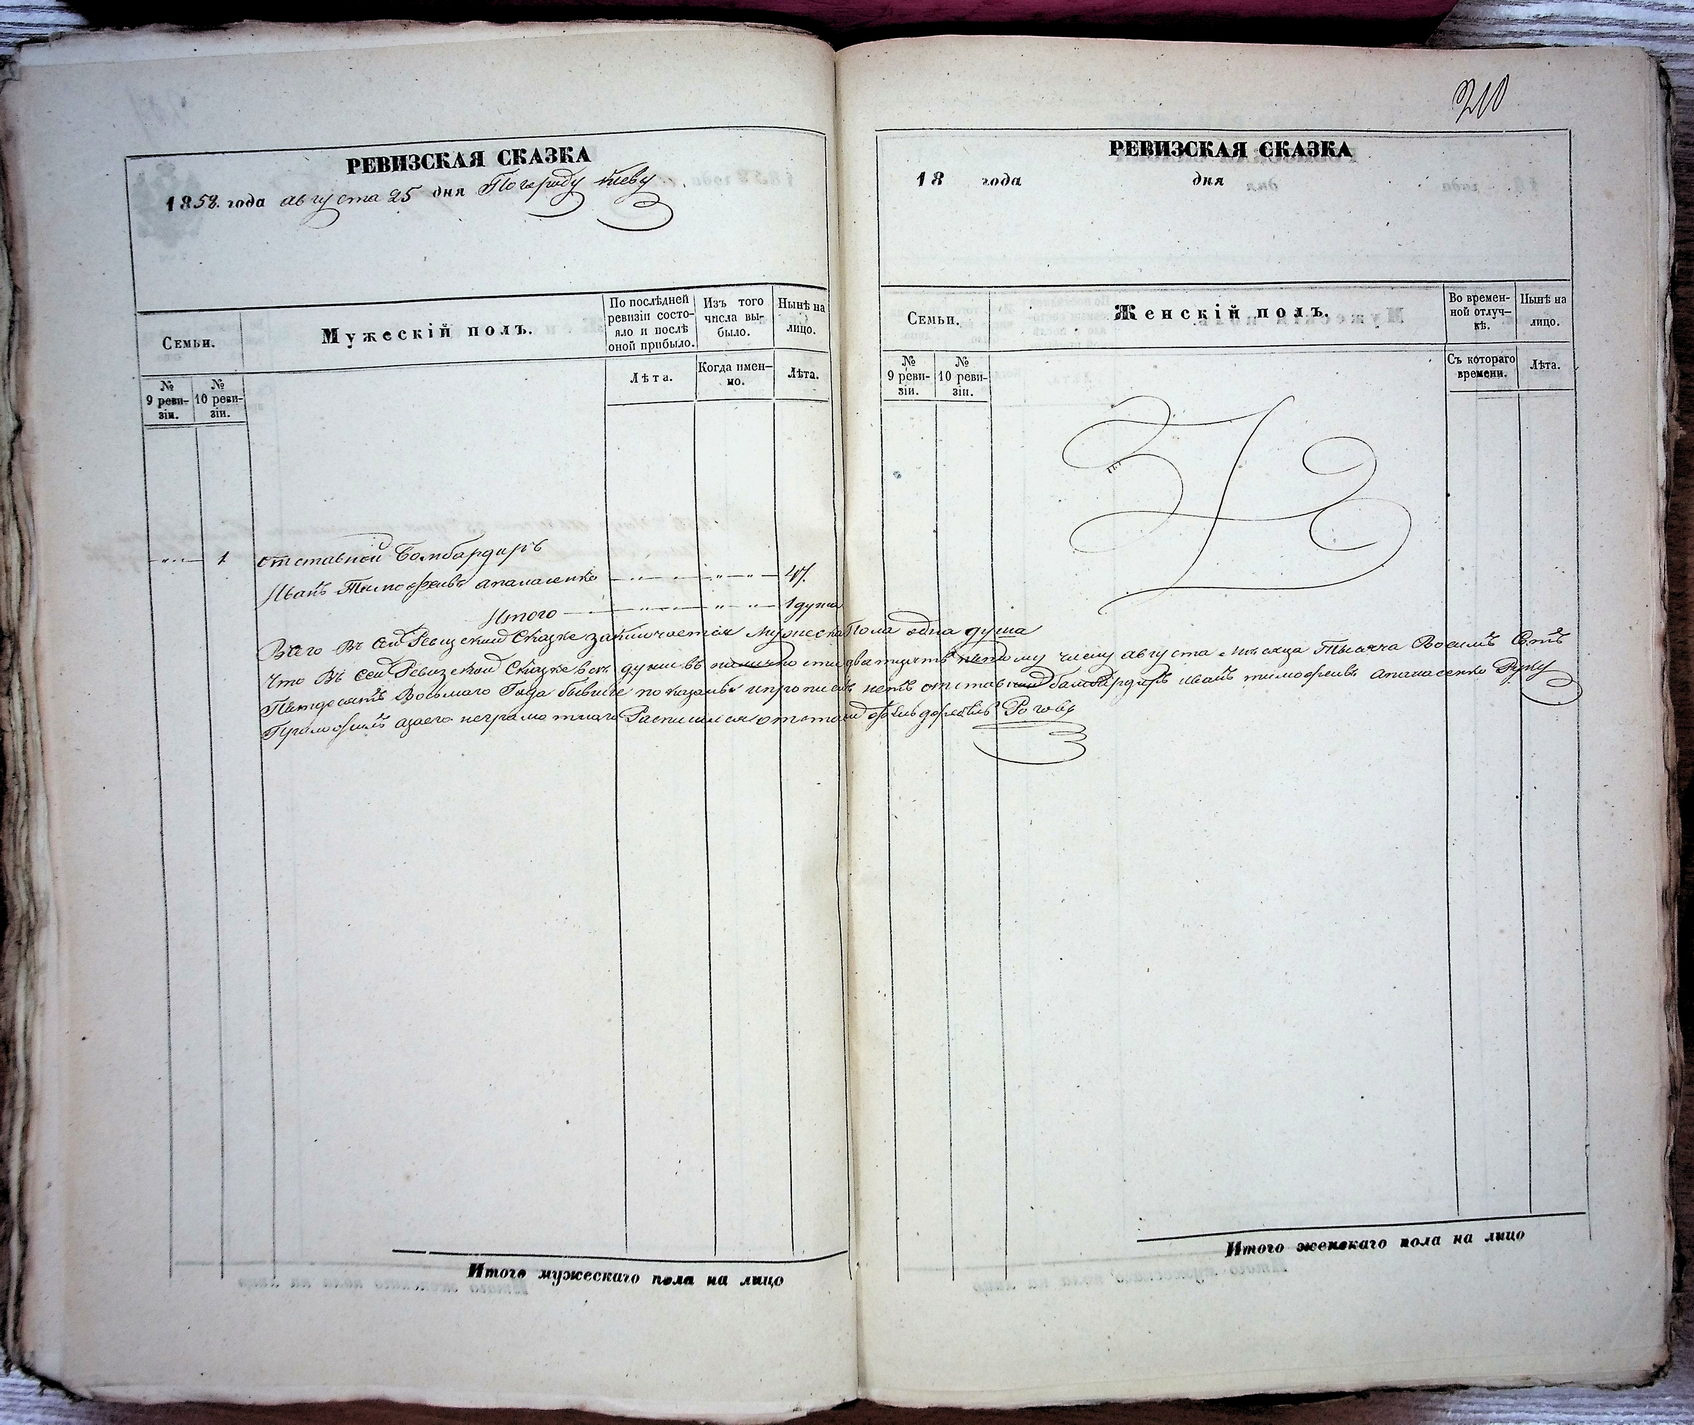 210
РЕВИЗСКАЯ СКАЗКА
1858. года августа 25 дня По городу Киеву
Семьи.
Мужескій полъ.
По послѣдней ревизіи состояло и послѣ оной прибыло.
Изъ того числа выбыло.
Нынѣ на лицо.
№ 9 ревизіи.
№ 10 ревизіи.
Лѣта.
Когда именно.
Лѣта.
1 отставной Бомбардиръ
Иванъ Тимофеивъ апанасенко 47.
Итого 1 душа
Всего Въ сей Ревизской Сказке заключается Мужеска Пола одна душа
Что Въ сей Ревизской Сказке все души въ по му числу августа месяца Тысяча Восемъ Сотъ
Пятдесятъ Восьмаго Года бывшие показаны и прописныхъ нетъ отставной бамбардиръ иванъ тимофеивъ апанасенко Руку
Приложилъ а заего неграмотнаго Расписался
РЕВИЗСКАЯ СКАЗКА
18 года дня
Семьи.
Женскій полъ.
Во временной отлучкѣ.
Нынѣ на лицо.
№ 9 ревизіи.
№ 10 ревизіи.
Съ котораго времени.
Лѣта.
Итого мужескаго пола на лицо
Итого женскаго пола на лицо